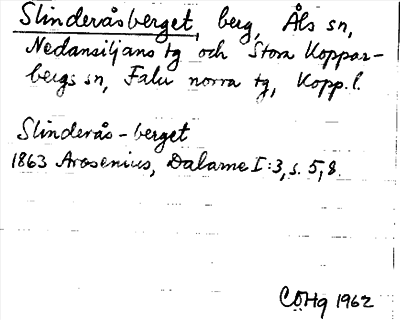 Slinderåsberget, berg, Åls sn,
Nedansiljans tg och Stora Koppar-
bergs sn, Falu norra tg, Kopp. l.
Slinderås-berget
1863 Arosenius, Dalarne I:3, s. 5, 8.
CÖHg 1962